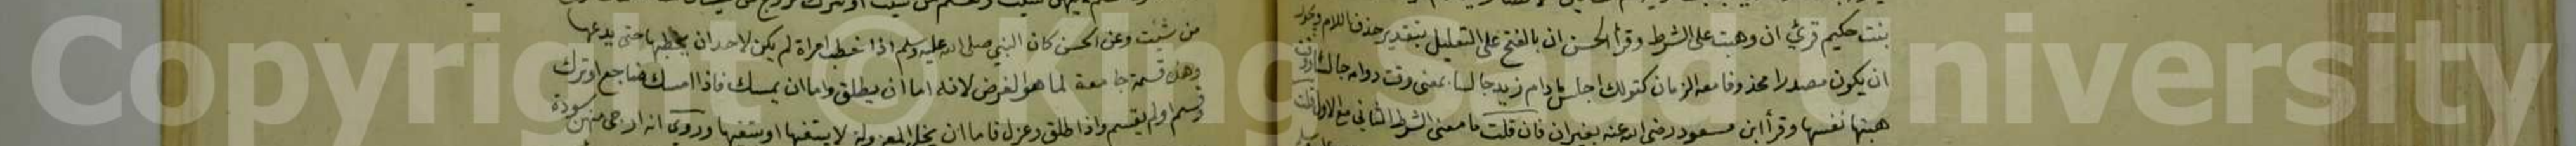 بنت حكيم قرئ ان وهبت على الشرط وقرأ الحسن ان بالفتح على التعليل بتقدير حذف اللام ويجوز
ان يكون مصدرا محذوفا معه الزمان كقولك اجلس مادام زيد جالسا بمعنى وقت دوامه جالسا
هبتها نفسها وقرأ ابن مسعود رضي الله عنه بغير ان فان قلت ما معنى الشرط الثاني مع الاول قلت
من شئت وعن الحسن كان النبي صلى الله عليه وسلم اذا خطب امراة لم يكن لاحد ان يخطبها حتى يدعها
وهذه قسمة جامعة لما هو الغرض لانه اما ان يطلق واما ان يمسك فاذا امسك ضاجع او ترك
وقسم او لم يقسم واذا طلق وعزل فاما ان يخلي المعزولة لا يبتغيها او يبتغيها وروي انه ارجى منهن سودة
Copyright © King Saud University